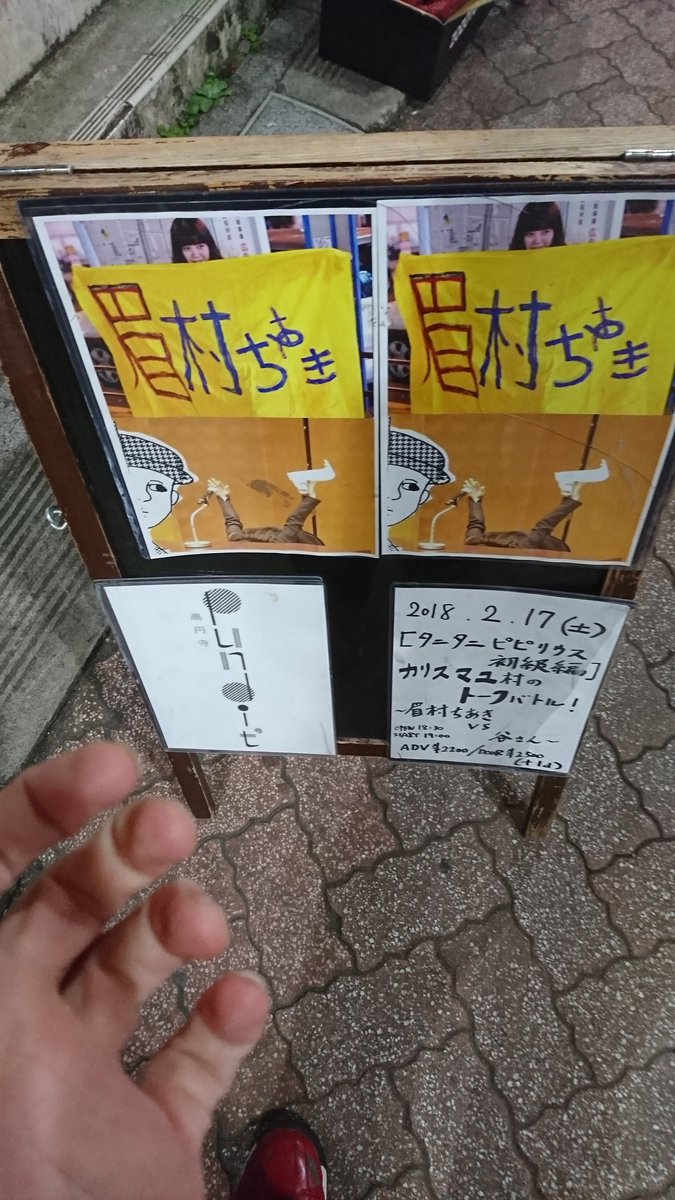 眉村ちあき
眉村ちあき
高円寺
pundit'
2018.2.17(土)
[タニタニピピリウス
初級編]
カリスマユ村の
トークバトル!
~眉村ちあき
VS
谷さん~
OPEN 18:30
START 19:00
ADV ¥2200/DOOR ¥2500
(+1d)